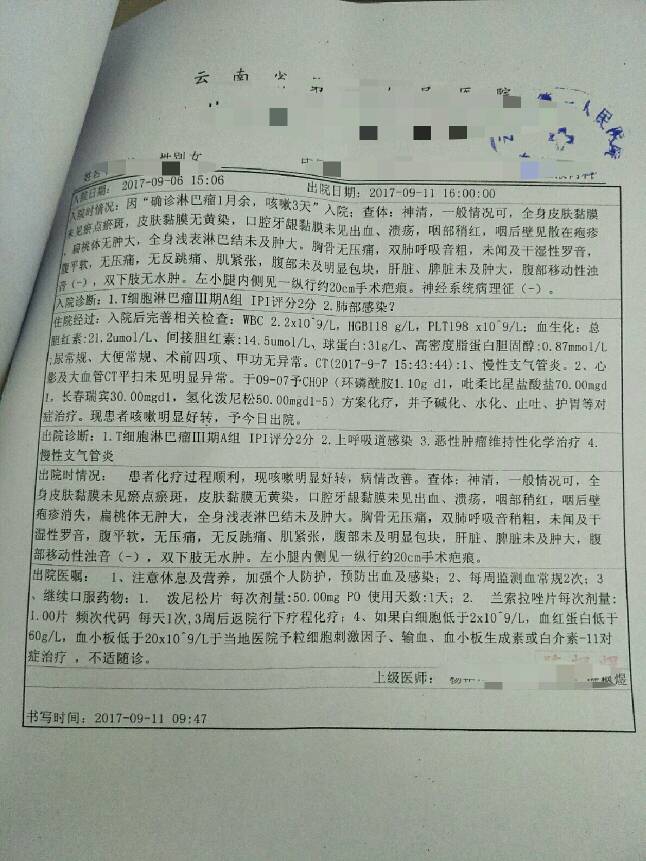 云南
人民医院
性别 女
入院日期: 2017-09-06 15:06 出院日期: 2017-09-11 16:00:00
入院时情况: 因“确诊淋巴瘤1月余, 咳嗽3天”入院; 查体: 神清, 一般情况可, 全身皮肤黏膜
未见瘀点瘀斑, 皮肤黏膜无黄染, 口腔牙龈黏膜未见出血、溃疡, 咽部稍红, 咽后壁见散在疱疹
, 扁桃体无肿大, 全身浅表淋巴结未及肿大。胸骨无压痛, 双肺呼吸音粗, 未闻及干湿性罗音,
腹平软, 无压痛, 无反跳痛、肌紧张, 腹部未及明显包块, 肝脏、脾脏未及肿大, 腹部移动性浊
音(-), 双下肢无水肿。左小腿内侧见一纵行约20cm手术疤痕。神经系统病理征(-)。
入院诊断: 1.T细胞淋巴瘤Ⅲ期A组 IPI评分2分 2.肺部感染?
住院经过: 入院后完善相关检查: WBC 2.2x10^9/L, HGB118 g/L, PLT198 x10^9/L; 血生化: 总
胆红素:21.2umol/L、间接胆红素:14.5umol/L、球蛋白:31g/L、高密度脂蛋白胆固醇:0.87mmol/L
;尿常规、大便常规、术前四项、甲功无异常。CT(2017-9-7 15:43:44):1、慢性支气管炎。2、心
影及大血管CT平扫未见明显异常。于09-07予CHOP(环磷酰胺1.10g d1, 吡柔比星盐酸盐70.00mgd
1, 长春瑞宾30.00mgd1, 氢化泼尼松50.00mgd1-5)方案化疗, 并予碱化、水化、止吐、护胃等对
症治疗。现患者咳嗽明显好转, 予今日出院。
出院诊断: 1.T细胞淋巴瘤Ⅲ期A组 IPI评分2分 2.上呼吸道感染 3.恶性肿瘤维持性化学治疗 4.
慢性支气管炎
出院时情况: 患者化疗过程顺利, 现咳嗽明显好转, 病情改善。查体: 神清, 一般情况可, 全
身皮肤黏膜未见瘀点瘀斑, 皮肤黏膜无黄染, 口腔牙龈黏膜未见出血、溃疡, 咽部稍红, 咽后壁
疱疹消失, 扁桃体无肿大, 全身浅表淋巴结未及肿大。胸骨无压痛, 双肺呼吸音稍粗, 未闻及干
湿性罗音, 腹平软, 无压痛, 无反跳痛、肌紧张, 腹部未及明显包块, 肝脏、脾脏未及肿大, 腹
部移动性浊音(-), 双下肢无水肿。左小腿内侧见一纵行约20cm手术疤痕。
出院医嘱: 1、注意休息及营养, 加强个人防护, 预防出血及感染; 2、每周监测血常规2次; 3
、继续口服药物: 1. 泼尼松片 每次剂量:50.00mg PO 使用天数:1天; 2. 兰索拉唑片每次剂量:
1.00片 频次代码 每天1次, 3周后返院行下疗程化疗; 4、如果白细胞低于2x10^9/L, 血红蛋白低于
60g/L, 血小板低于20x10^9/L于当地医院予粒细胞刺激因子、输血、血小板生成素或白介素-11对
症治疗 , 不适随诊。
上级医师:
书写时间: 2017-09-11 09:47